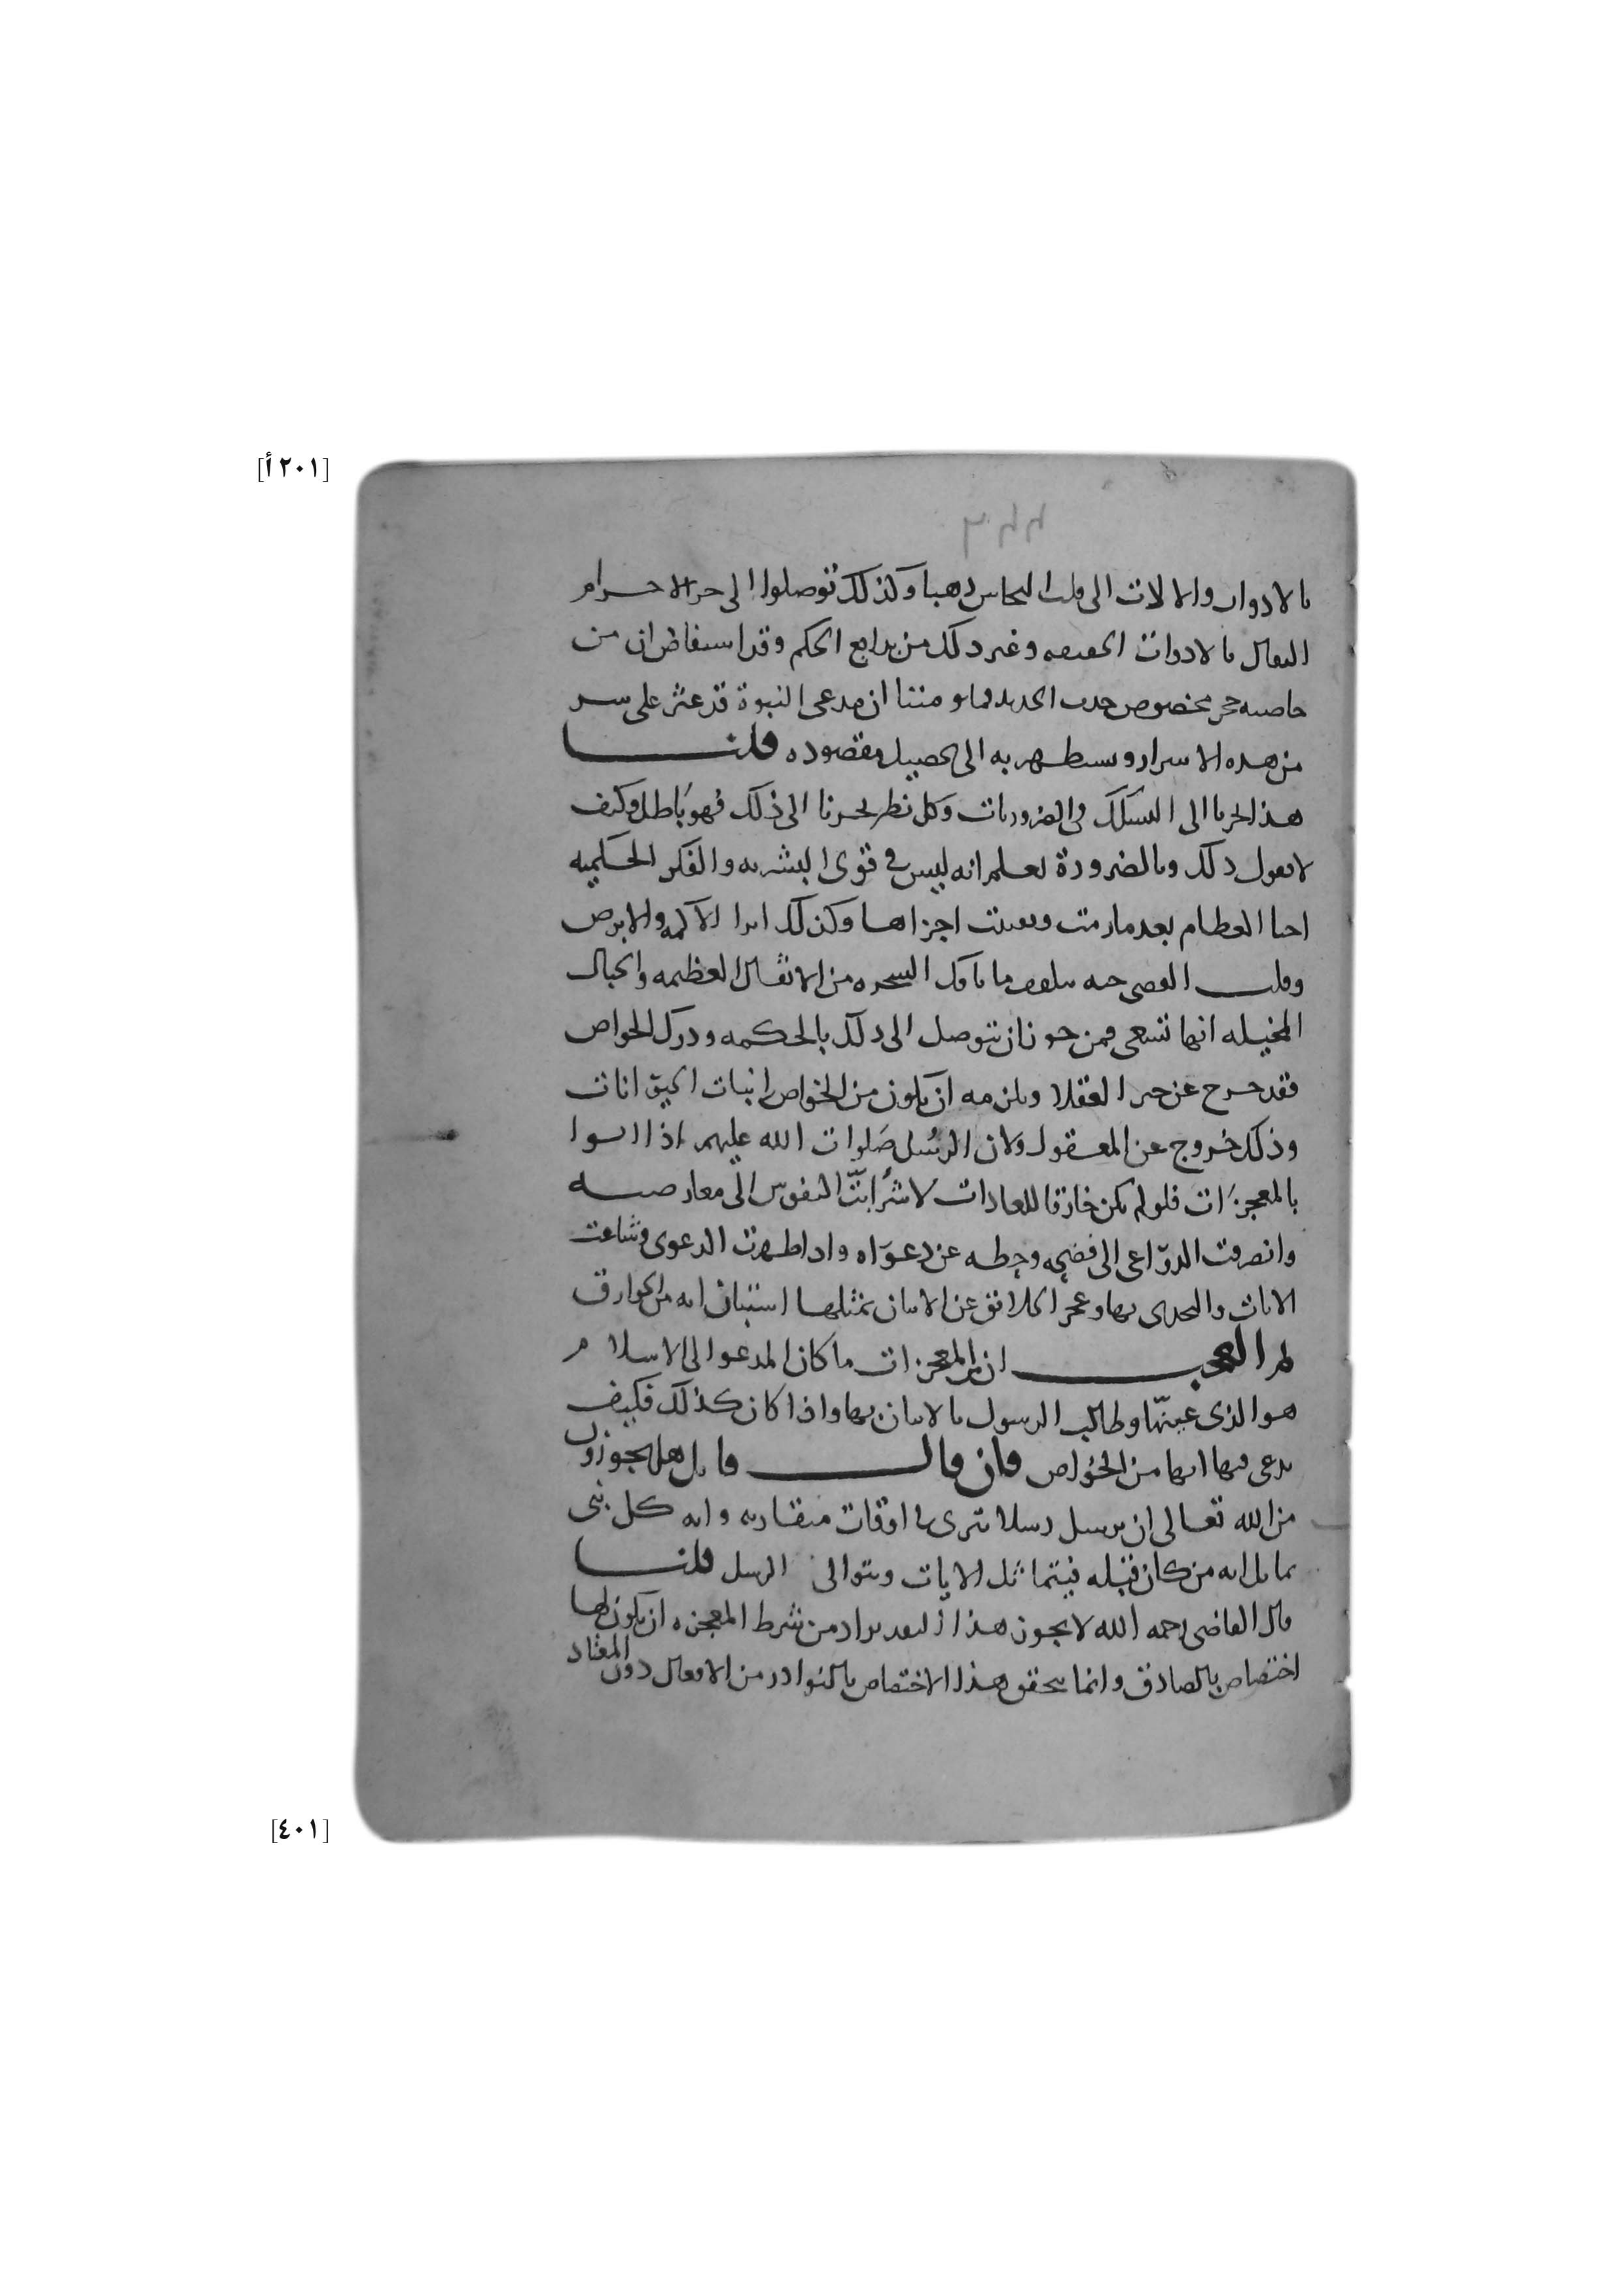 [٢٠١ أ]
بالادوات والالات الى قلب النحاس ذهبا وكذلك توصلوا الى جر الاجرام
الثقال بالادوات الخفيفه وغير ذلك من بدايع الحكم وقد استفاض ان من
خاصيه حجر مخصوص جذب الحديد فما يومننا ان مدعى النبوة قد عثر على سر
من هذه الاسرار ويستظهر به الى تحصيل مقصوده قلنا
هذا يجرنا الى التشكك فى الضروريات وكل نظر يجرنا الى ذلك فهو باطل وكيف
لا نقول ذلك وبالضرورة نعلم انه ليس في قوى البشريه والفكر الحكميه
احيا العظام بعد ما رمت وتفتتت اجزاها وكذلك ابرا الاكمه والابرص
وقلب العصى حيه تلقف ما يافك السحره من الاثقال العظيمه والحبال
المخيله انها تسعى فمن جوز ان يتوصل الى ذلك بالحكمه ودرك الخواص
فقد خرج عن حيز العقلا ويلزمه ان يكون من الخواص انبات الحيوانات
وذلك خروج عن المعقول ولان الرسل صلوات الله عليهم اذا اتسوا
بالمعجزات فلو لم يكن خارقا للعادات لاشرأبّت النفوس الى معارضته
وانصرفت الدواعى الى فضحه وحطه عن دعواه واذا ظهرت الدعوى وشاعت
الايات والتحدى بها وعجز الخلائق عن الاتيان بمثلها استبان انه من الخوارق
ثم العجب ان من المعجزات ما كان المدعو الى الاسلام
هو الذى عينّها وطالب الرسول بالاتيان بها واذا كان كذلك فكيف
يدعى فيها انها من الخواص فان قال قايل هل يجوزون
من الله تعالى ان يرسل رسلا تترى فى اوقات متقاربه وايه كل نبى
تماثل ايه من كان قبله فيتماثل الايات ويتوالى الرسل قلنا
قال القاضى رحمه الله لا يجوز هذا التقدير اذ من شرط المعجزه ان يكون لها
اختصاص بالصادق وانما يتحقق هذا الاختصاص بالنوادر من الافعال دون المعتاد
[٤٠١]